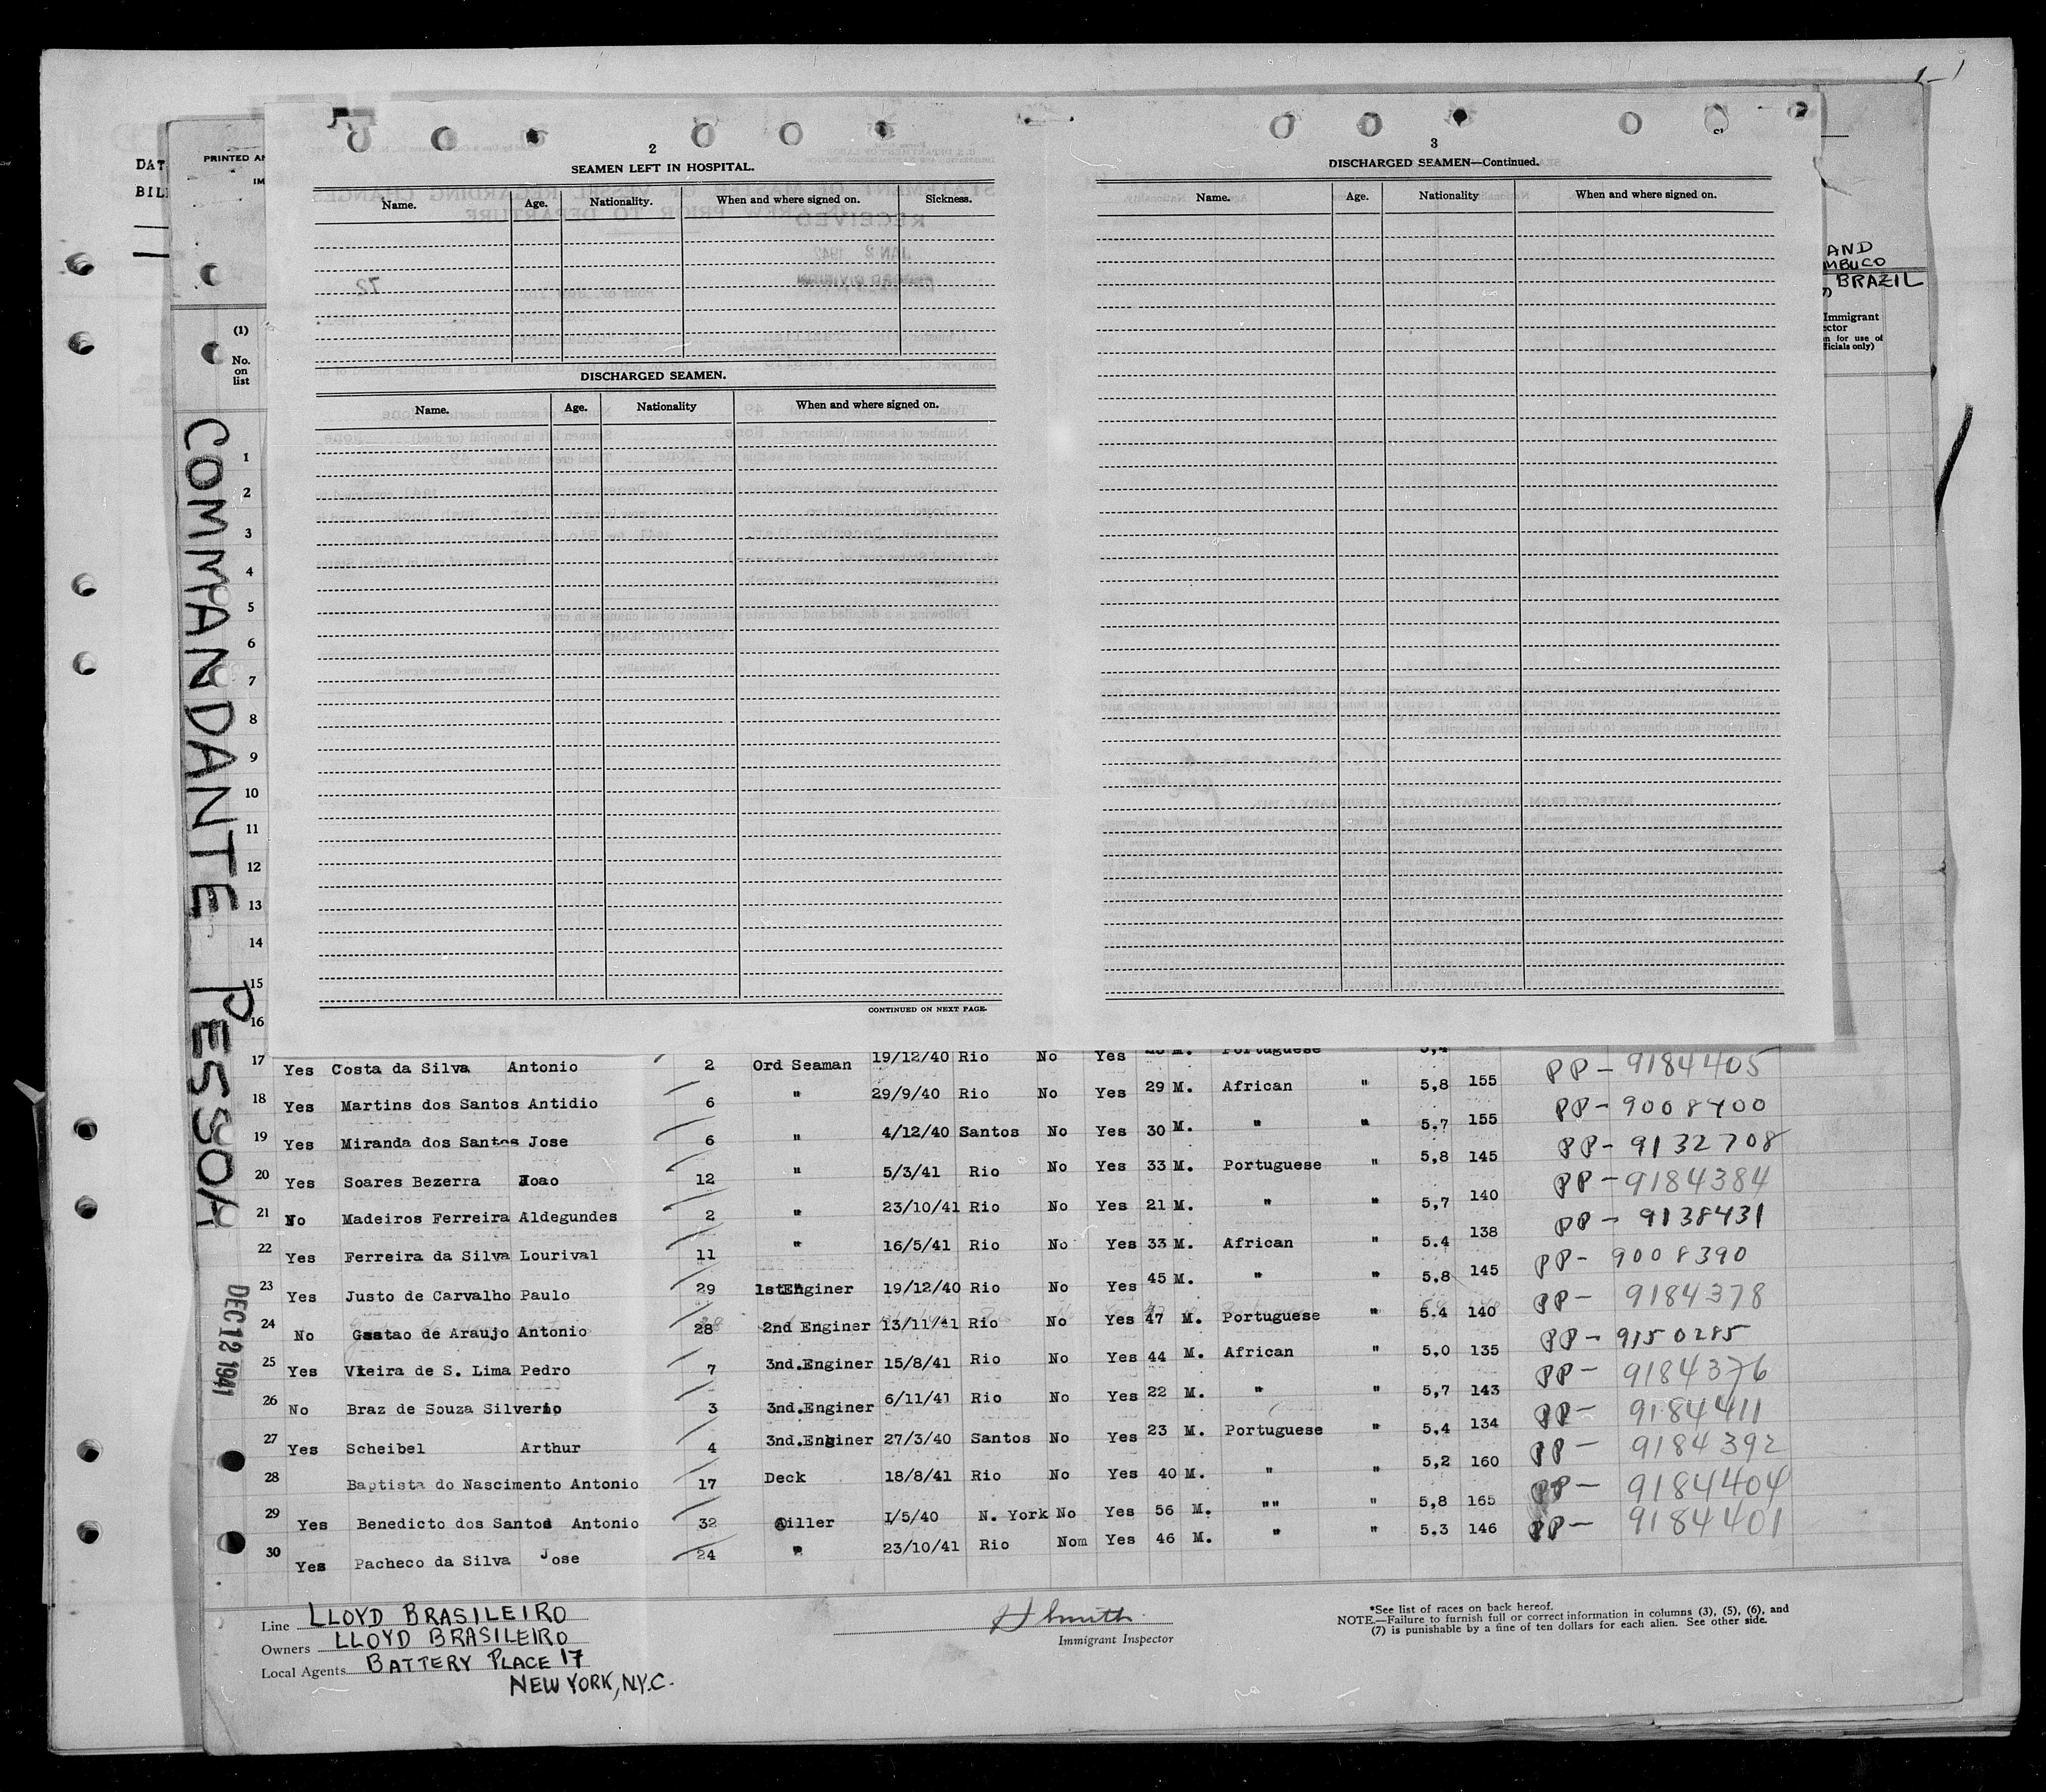 DAT
BIL
PRINTED AN
IM
2
SEAMEN LEFT IN HOSPITAL.
Name. Age. Nationality. When and where signed on. Sickness.
DISCHARGED SEAMEN.
Name. Age. Nationality When and where signed on.
CONTINUED ON NEXT PAGE.
3
DISCHARGED SEAMEN—Continued.
Name. Age. Nationality When and where signed on.
AND
MBUCO
BRAZIL
Immigrant
ector
n for use of
ficials only)
(1)
No.
on
list
COMMANDANTE PESSOA
DEC 12 1941
1
2
3
4
5
6
7
8
9
10
11
12
13
14
15
16
17 Yes Costa da Silva Antonio 2 Ord Seaman 19/12/40 Rio No Yes M. Portuguese 5,4 PP - 9184405
18 Yes Martins dos Santos Antidio 6 " 29/9/40 Rio No Yes 29 M. African " 5,8 155 PP - 9008400
19 Yes Miranda dos Santos Jose 6 " 4/12/40 Santos No Yes 30 M. " " 5.7 155 PP - 9132708
20 Yes Soares Bezerra Joao 12 " 5/3/41 Rio No Yes 33 M. Portuguese " 5,8 145 PP - 9184384
21 No Madeiros Ferreira Aldegundes 2 " 23/10/41 Rio No Yes 21 M. " " 5,7 140 PP - 9138431
22 Yes Ferreira da Silva Lourival 11 " 16/5/41 Rio No Yes 33 M. African " 5.4 138 PP - 9008390
23 Yes Justo de Carvalho Paulo 29 1st Enginer 19/12/40 Rio No Yes 45 M. " " 5,8 145 PP - 9184378
24 No Gastao de Araujo Antonio 28 2nd Enginer 13/11/41 Rio No Yes 47 M. Portuguese " 5.4 140 PP - 9150285
25 Yes Vieira de S. Lima Pedro 7 3nd.Enginer 15/8/41 Rio No Yes 44 M. African " 5,0 135 PP - 9184376
26 No Braz de Souza Silverio 3 3nd.Enginer 6/11/41 Rio No Yes 22 M. " " 5,7 143 PP - 9184411
27 Yes Scheibel Arthur 4 3nd.Enginer 27/3/40 Santos No Yes 23 M. Portuguese " 5,4 134 PP - 9184392
28 Baptista do Nascimento Antonio 17 Deck 18/8/41 Rio No Yes 40 M. " " 5,2 160 PP - 9184404
29 Yes Benedicto dos Santos Antonio 32 Oiller 1/5/40 N. York No Yes 56 M. "" " 5,8 165 PP - 9184401
30 Yes Pacheco da Silva Jose 24 " 23/10/41 Rio Nom Yes 46 M. " " 5.3 146
Line LLOYD BRASILEIRO
Owners LLOYD BRASILEIRO
Local Agents BATTERY PLACE 17
NEW YORK, N.Y.C.
H Smith
Immigrant Inspector
*See list of races on back hereof.
NOTE.—Failure to furnish full or correct information in columns (3), (5), (6), and
(7) is punishable by a fine of ten dollars for each alien. See other side.